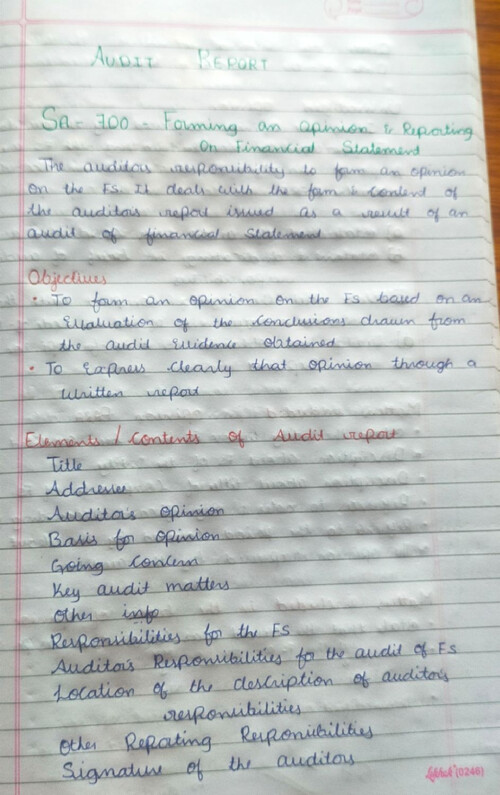 AUDIT REPORT
SA-700 - Forming an opinion & Reporting
on Financial Statement
The auditors responsibility to form an opinion
on the FS. It deals with the form & content of
the auditors report issued as a result of an
audit of financial statement
Objectives
• To form an opinion on the FS based on an
Evaluation of the conclusions drawn from
the audit evidence obtained
• To Express clearly that opinion through a
written report
Elements / Contents of Audit report
Title
Addressee
Auditor's opinion
Basis for opinion
Going Concern
Key audit matters
Other info
Responsibilities for the FS
Auditor's Responsibilities for the audit of FS
Location of the description of auditor's
responsibilities
Other Reporting Responsibilities
Signature of the auditors
(0248)